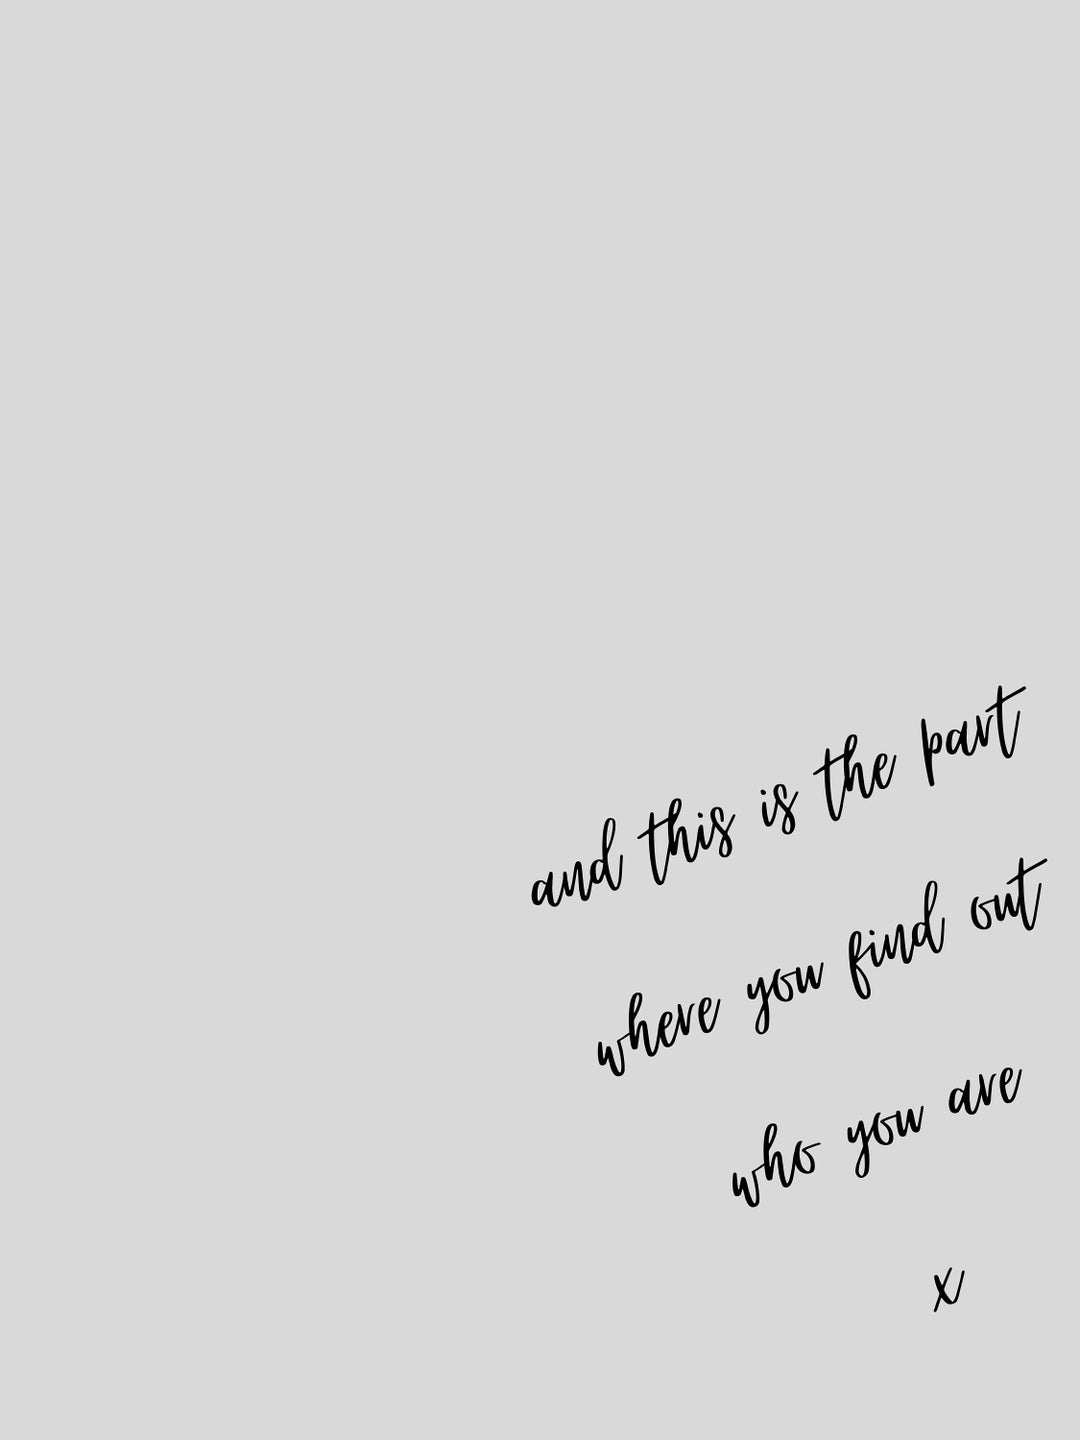 and this is the part
where you find out
who you are
x